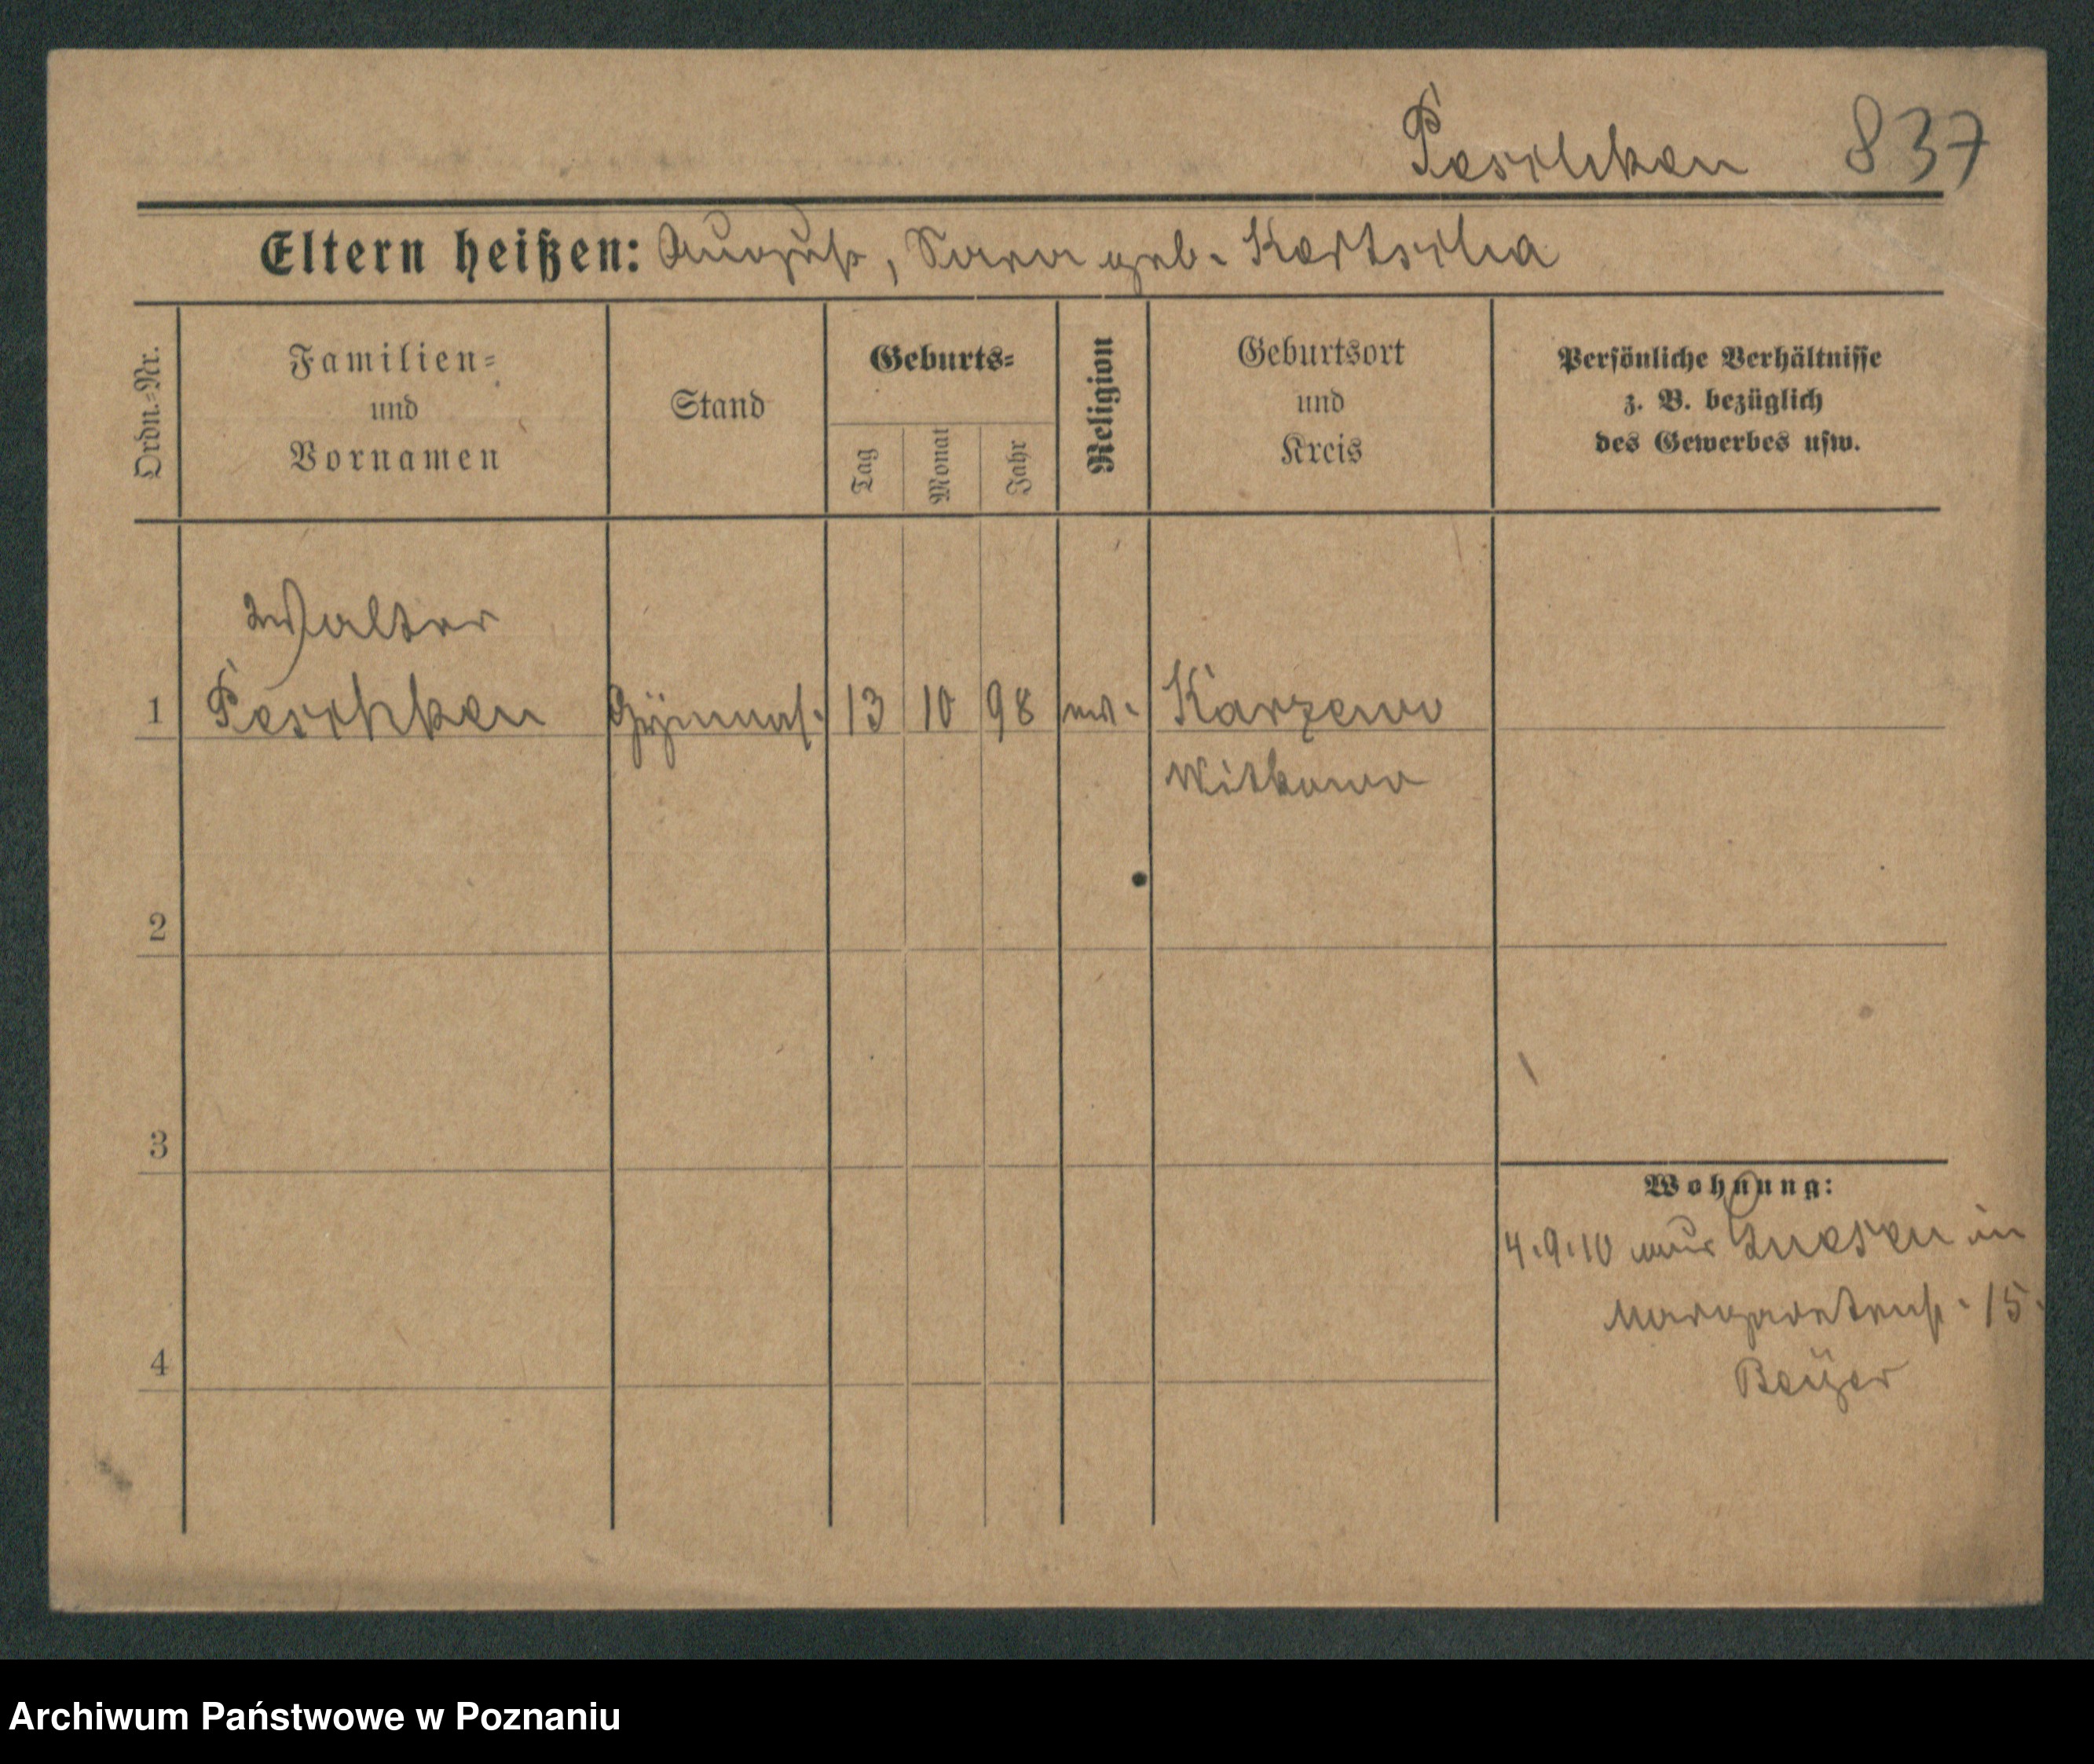 Peschken 837
Eltern heißen: August, Sara geb. Kortscha
Ordn.-Nr.
Familien-
und
Vornamen
Stand
Geburts-
Tag
Monat
Jahr
Religion
Geburtsort
und
Kreis
Persönliche Verhältnisse
z. B. bezüglich
des Gewerbes usw.
Walter
1 Peschken Gymnas. 13 10 98 ev. Karzewo
Witkowo
2
3
4
Wohnung:
4.9.10 aus Gnesen in
Margaretenstr. 15.
Beyer
Archiwum Państwowe w Poznaniu